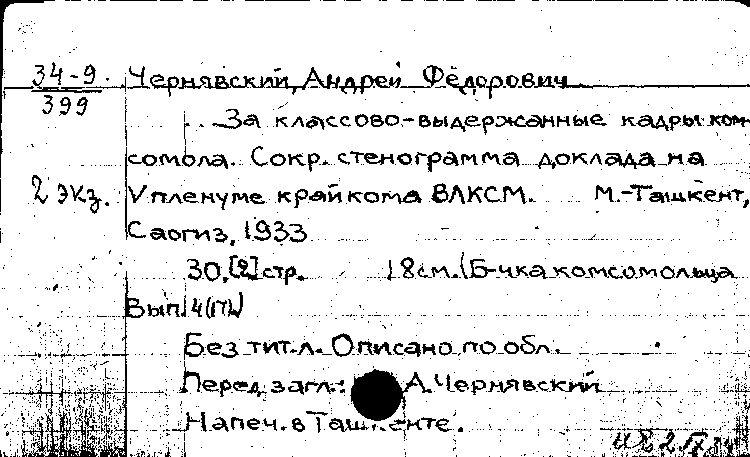 34-9 Чернявский, Андрей Фёдорович
399
За классово-выдержанные кадры ком-
сомола. Сокр. стенограмма доклада на
2 экз. V пленуме крайкома ВЛКСМ. М.-Ташкент,
Саогиз, 1933
30, [2] стр. 18см. (Б-чка комсомольца
Вып. 4(17))
Без тит.л. Описано по обл.
Перед загл.: А.Чернявский
Напеч. в Ташкенте.